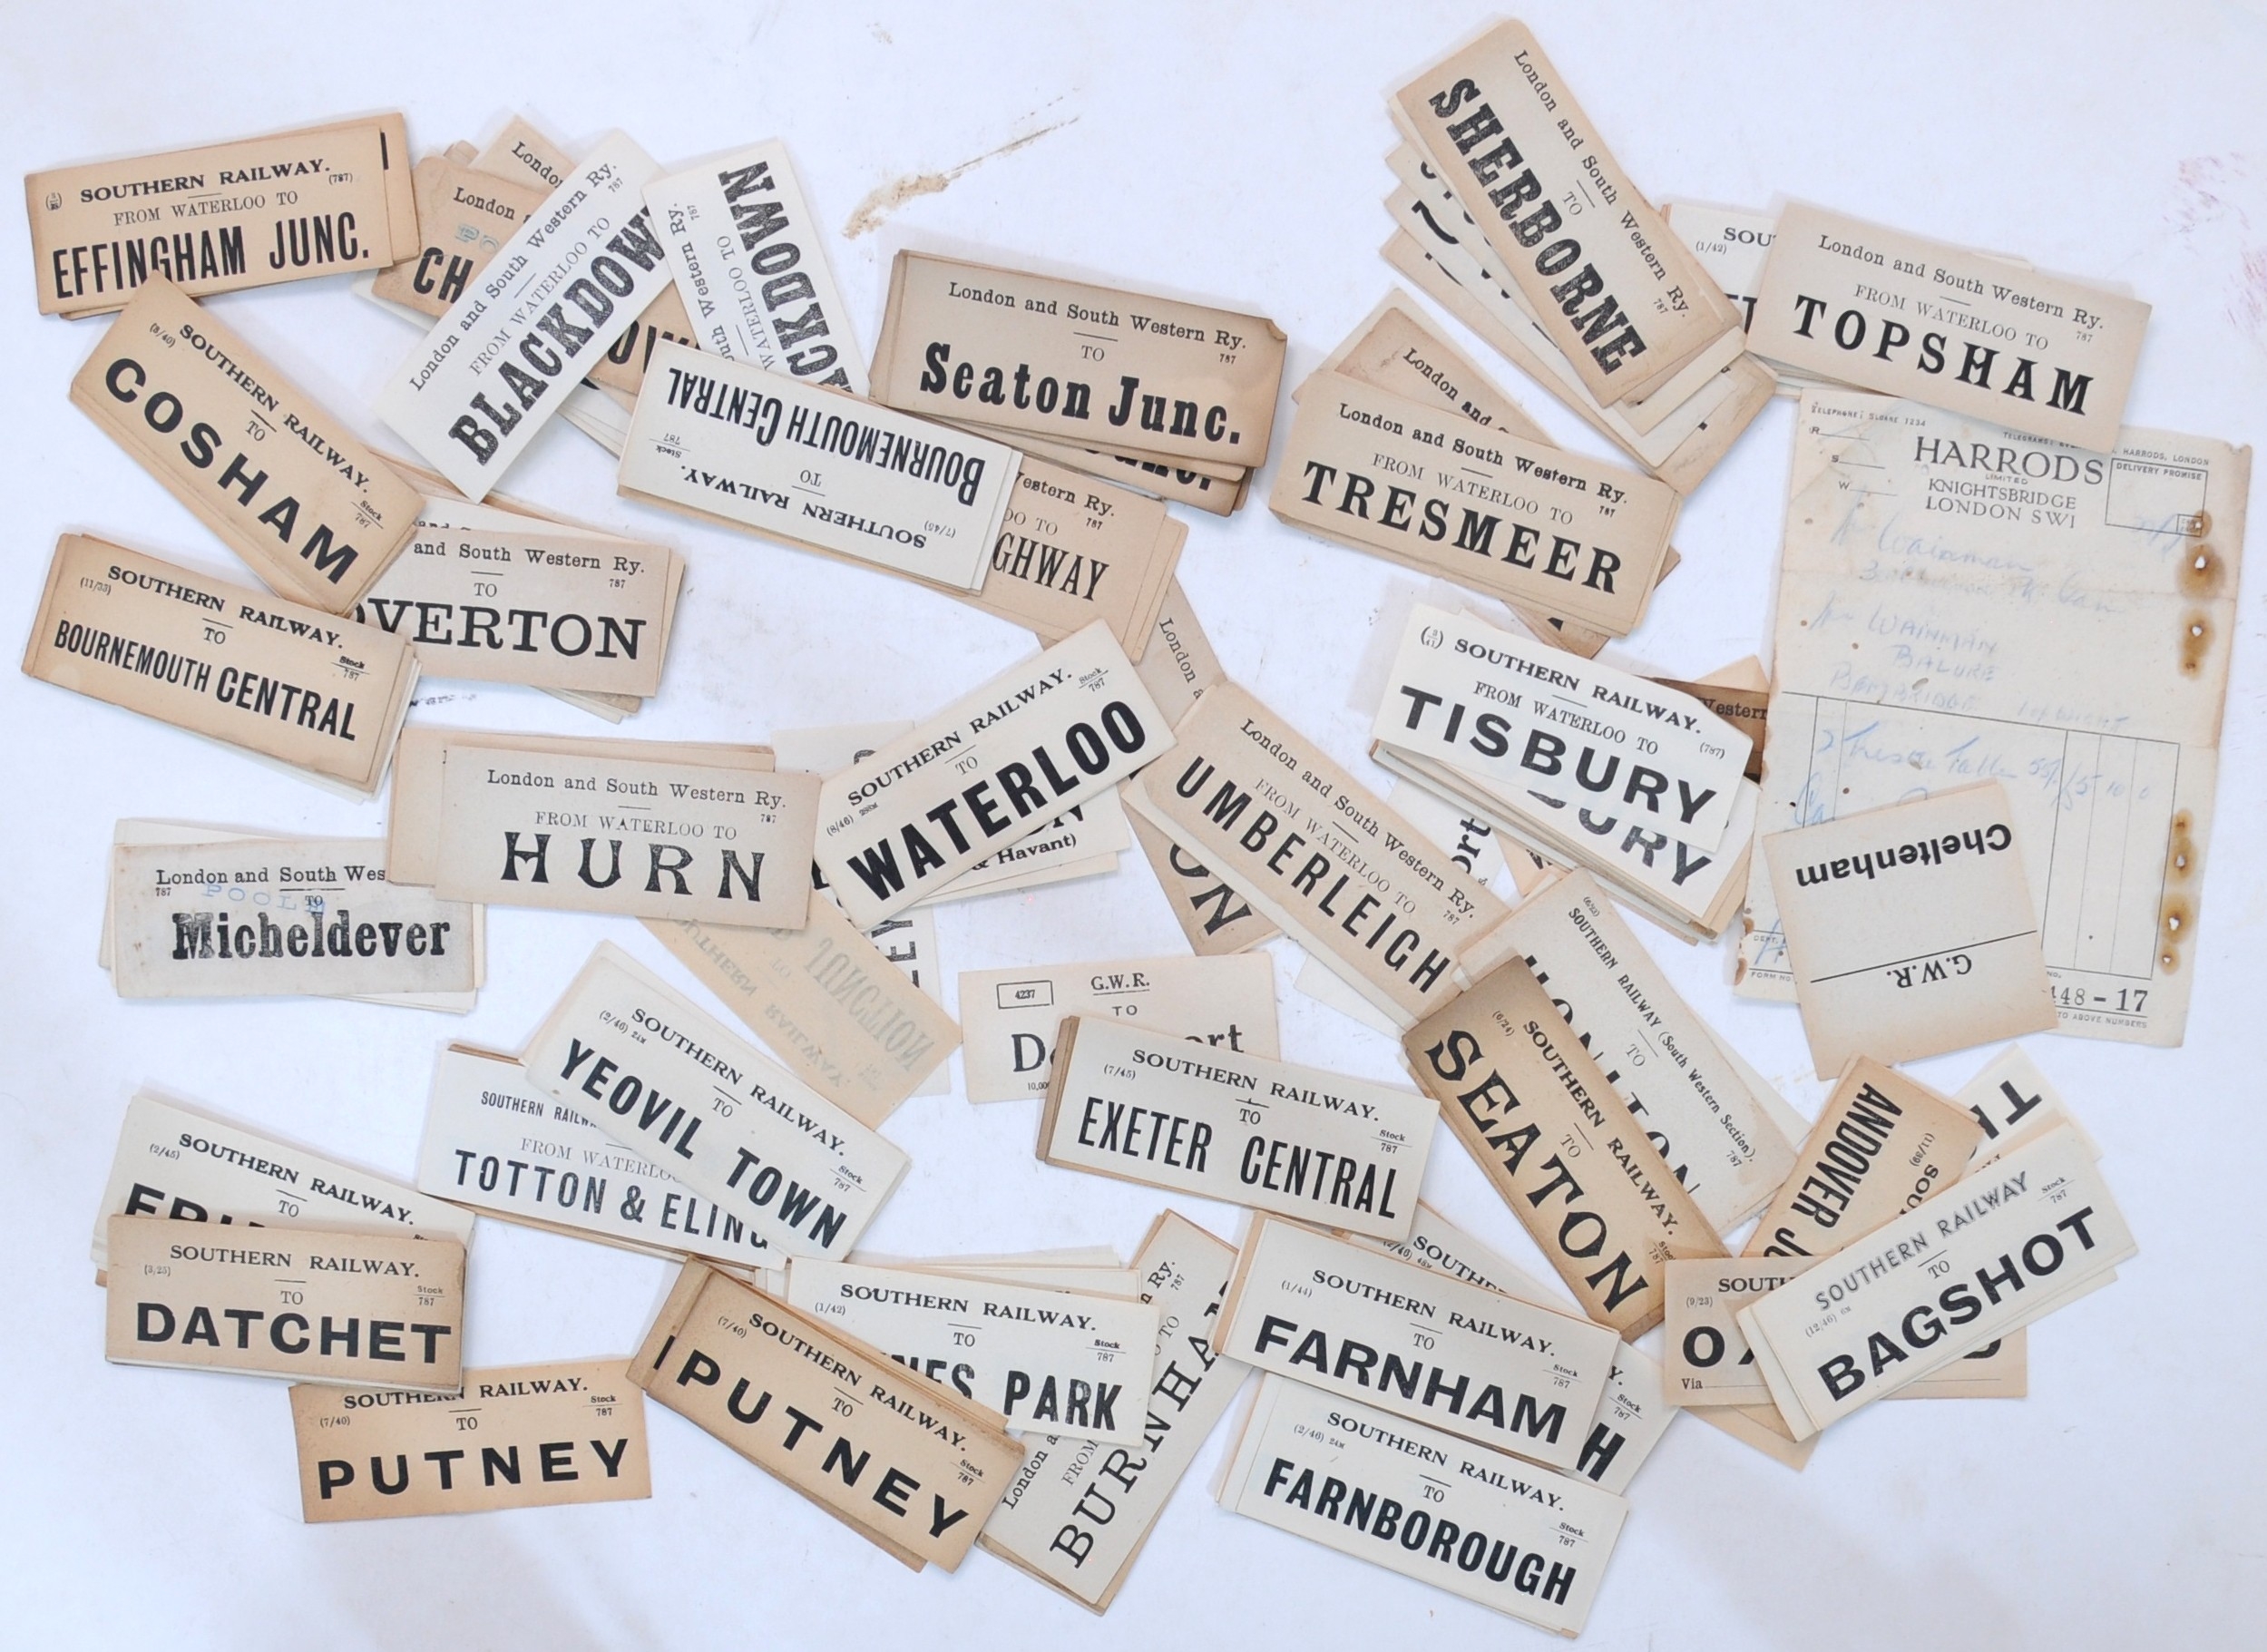 SOUTHERN RAILWAY. (787)
FROM WATERLOO TO
EFFINGHAM JUNC.
London
London
CH
London and South Western Ry.
787
FROM WATERLOO TO
BLACKDOW
outh Western Ry.
787
WATERLOO TO
ACKDOWN
OW
(8/40)
SOUTHERN RAILWAY.
TO
Stock
787
COSHAM
SOUTHERN RAILWAY.
(7/45)
TO
Stock
787
BOURNEMOUTH CENTRAL
London and South Western Ry.
TO
787
Seaton Junc.
unc.
estern Ry.
OO TO
787
GHWAY
London a
London and South Western Ry.
TO
787
SHERBORNE
(1/42)
SOU
London and South Western Ry.
FROM WATERLOO TO
787
TOPSHAM
London and
London and South Western Ry.
FROM WATERLOO TO
787
TRESMEER
TELEPHONE: SLOANE 1234
HARRODS, LONDON
HARRODS
LIMITED
KNIGHTSBRIDGE
LONDON SW1
DELIVERY PROMISE
R
S
W
Wainman
WAINMAN
FORM NO
448-17
TO ABOVE NUMBERS
and South Western Ry.
TO
787
OVERTON
(11/33)
SOUTHERN RAILWAY.
TO
Stock
787
BOURNEMOUTH CENTRAL
SOUTHERN RAILWAY.
FROM WATERLOO TO
(787)
TISBURY
BURY
Western
London and South Western Ry.
FROM WATERLOO TO
787
HURN
SOUTHERN RAILWAY.
Stock
787
TO
(8/46)
WATERLOO
& Havant)
London and South Western Ry.
FROM WATERLOO TO
787
UMBERLEIGH
ON
ort
G.W.R.
Cheltenham
London and South Wes
787
TO
POOLE
Micheldever
SOUTHERN RAILWAY.
TO
JUNCTION
EY
4237
G.W.R.
TO
D
ort
10,00
(6/22)
SOUTHERN RAILWAY (South Western Section).
TO
787
HONITON
(6/24)
SOUTHERN RAILWAY.
TO
787
SEATON
(2/46) 24M
SOUTHERN RAILWAY.
TO
Stock
787
YEOVIL TOWN
SOUTHERN RAILW
FROM WATERLOO
TOTTON & ELING
(7/45)
SOUTHERN RAILWAY.
TO
Stock
787
EXETER CENTRAL
(2/45)
SOUTHERN RAILWAY.
TO
(3/25)
SOUTHERN RAILWAY.
TO
Stock
787
DATCHET
(7/40)
SOUTHERN RAILWAY.
TO
Stock
787
PUTNEY
(7/40)
SOUTHERN RAILWAY.
TO
Stock
787
PUTNEY
(1/42)
SOUTHERN RAILWAY.
TO
Stock
787
NES PARK
n Ry.
787
TO
London a
FROM
BURNHA
SOUTHE
(1/44)
SOUTHERN RAILWAY.
TO
Stock
787
FARNHAM
Y.
Stock
787
H
(2/46) 24M
SOUTHERN RAILWAY.
TO
Stock
787
FARNBOROUGH
SOU
ANDOVER J
(9/23)
SOUTH
O
Via
SOUTHERN RAILWAY
Stock
787
TO
(12/46)
BAGSHOT